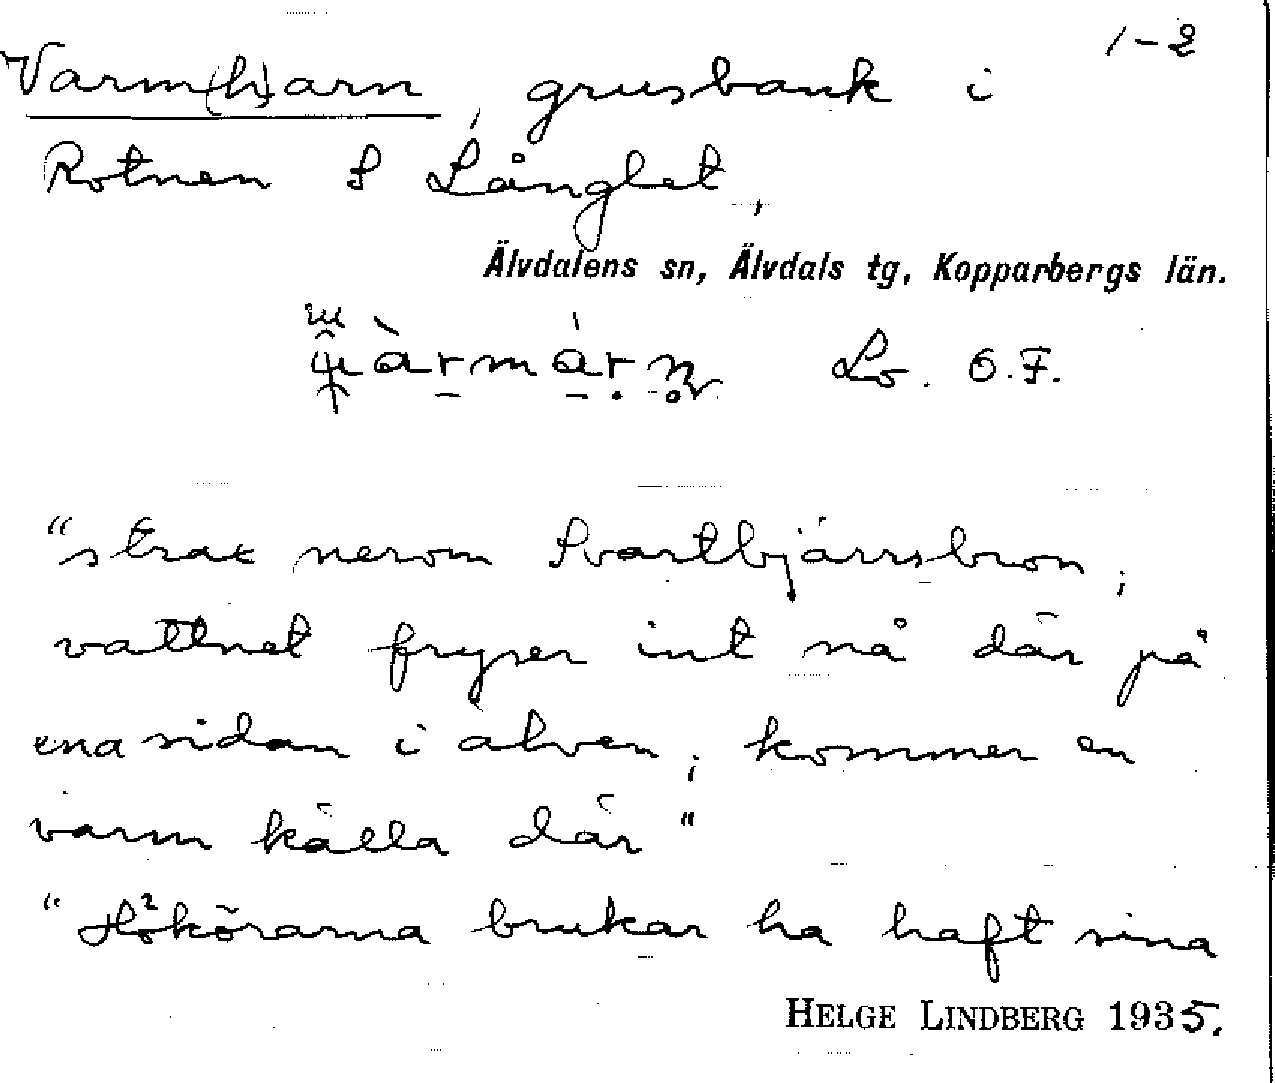 1-2
Varm(h)arn, grusbank i
Rotnen S Långlet,
Älvdalens sn, Älvdals tg, Kopparbergs län.
Lo. O.F.
"strax nerom Svartbjärrsbron,
vattnet fryser int nå där på
ena sidan i älven, kommer en
varm källa där"
"Hökörarna brukar ha haft sina
HELGE LINDBERG 1935.